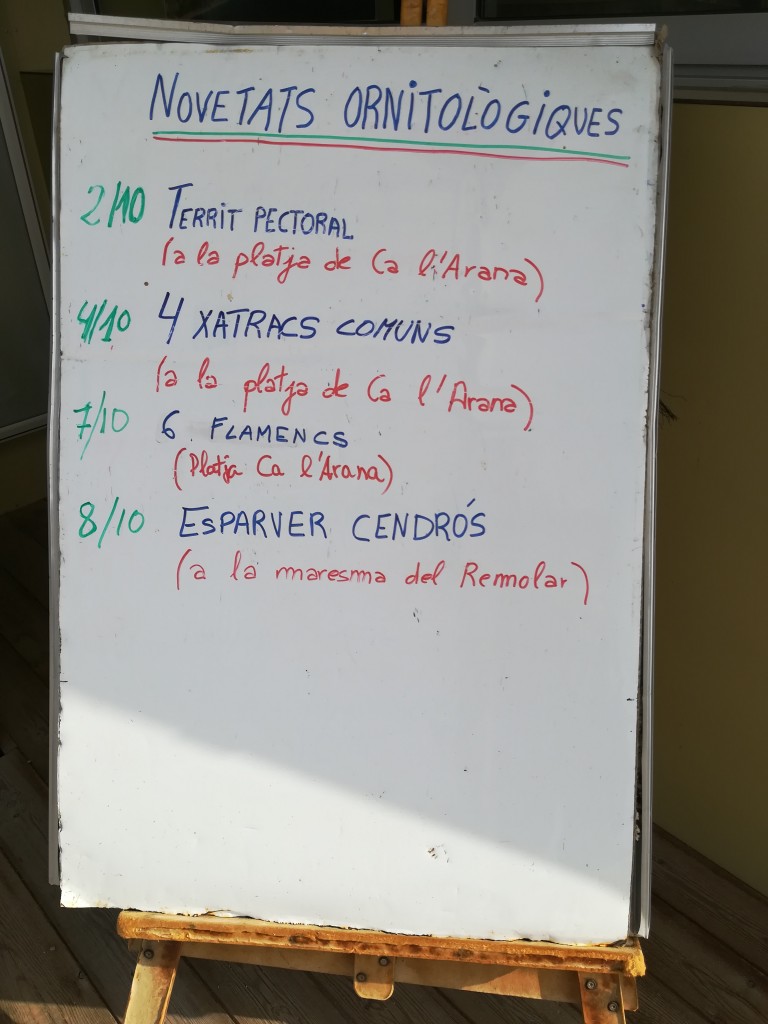 NOVETATS ORNITOLÒGIQUES
2/10 TERRIT PECTORAL
(a la platja de Ca l'Arana)
4/10 4 XATRACS COMUNS
(a la platja de Ca l'Arana)
7/10 6 FLAMENCS
(Platja Ca l'Arana)
8/10 ESPARVER CENDRÓS
(a la maresma del Remolar)